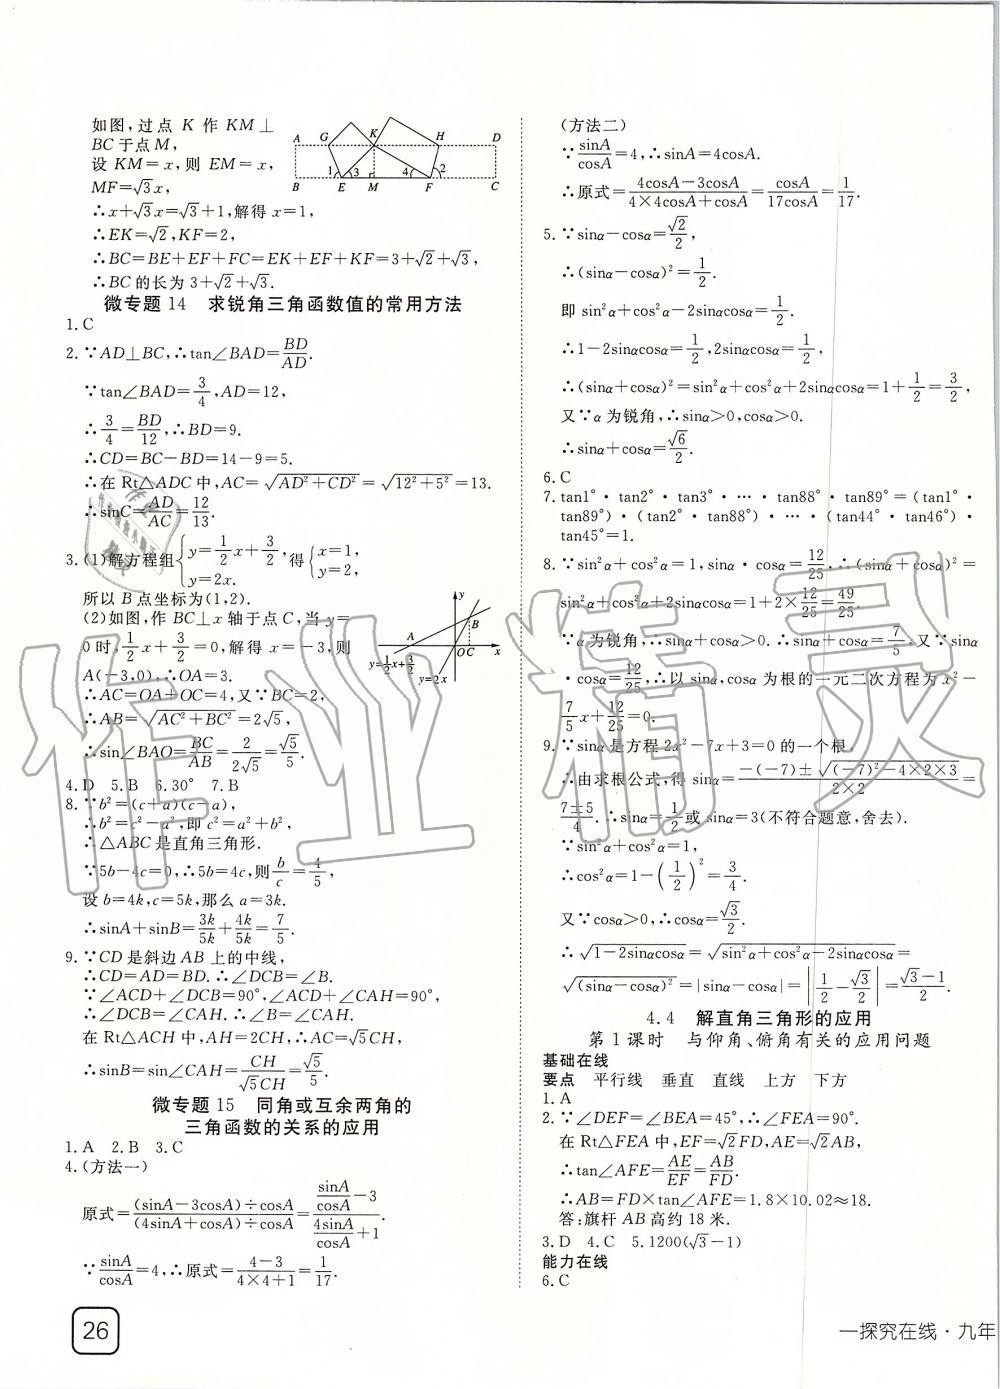 如图,过点 K 作 KM⊥
BC于点M,
设 KM=x,则 EM=x,
MF=√3x,
∴x+√3x=√3+1,解得 x=1,
∴EK=√2,KF=2,
∴BC=BE+EF+FC=EK+EF+KF=3+√2+√3,
∴BC的长为 3+√2+√3.
A G K H D
1 3 4 2
B E M F C
微专题14 求锐角三角函数值的常用方法
1.C
2.∵AD⊥BC,∴tan∠BAD=BD/AD.
∵tan∠BAD=3/4,AD=12,
∴3/4=BD/12,∴BD=9.
∴CD=BC-BD=14-9=5.
∴在 Rt△ADC中,AC=√(AD²+CD²)=√(12²+5²)=13.
∴sinC=AD/AC=12/13.
3.(1)解方程组{y=1/2x+3/2, y=2x. 得{x=1, y=2,
所以 B 点坐标为(1,2).
(2)如图,作 BC⊥x 轴于点 C,当 y=
0时,1/2x+3/2=0,解得 x=-3,则
A(-3,0),∴OA=3.
∴AC=OA+OC=4,又∵BC=2,
∴AB=√(AC²+BC²)=2√5,
∴sin∠BAO=BC/AB=2/(2√5)=√5/5.
y
A B
O C x
y=1/2x+3/2
y=2x
4.D 5.B 6.30° 7.B
8.∵b²=(c+a)(c-a),
∴b²=c²-a²,即 c²=a²+b²,
∴△ABC是直角三角形.
∵5b-4c=0,∴5b=4c,则b/c=4/5,
设 b=4k,c=5k,那么 a=3k.
∴sinA+sinB=3k/5k+4k/5k=7/5.
9.∵CD 是斜边 AB 上的中线,
∴CD=AD=BD.∴∠DCB=∠B.
∵∠ACD+∠DCB=90°,∠ACD+∠CAH=90°,
∴∠DCB=∠CAH.∴∠B=∠CAH.
在 Rt△ACH 中,AH=2CH,∴AC=√5CH,
∴sinB=sin∠CAH=CH/(√5CH)=√5/5.
微专题15 同角或互余两角的
三角函数的关系的应用
1.A 2.B 3.C
4.(方法一)
原式=((sinA-3cosA)÷cosA)/((4sinA+cosA)÷cosA)=(sinA/cosA-3)/(4sinA/cosA+1)
∵sinA/cosA=4,∴原式=(4-3)/(4×4+1)=1/17.
26
(方法二)
∵sinA/cosA=4,∴sinA=4cosA.
∴原式=(4cosA-3cosA)/(4×4cosA+cosA)=cosA/17cosA=1/17.
5.∵sinα-cosα=√2/2,
∴(sinα-cosα)²=1/2.
即 sin²α+cos²α-2sinαcosα=1/2.
∴1-2sinαcosα=1/2,2sinαcosα=1/2,
∴(sinα+cosα)²=sin²α+cos²α+2sinαcosα=1+1/2=3/2,
又∵α为锐角,∴sinα>0,cosα>0.
∴sinα+cosα=√6/2.
6.C
7.tan1°·tan2°·tan3°·…·tan88°·tan89°=(tan1°·
tan89°)·(tan2°·tan88°)·…·(tan44°·tan46°)·
tan45°=1.
8.∵sin²α+cos²α=1,sinα·cosα=12/25,∴(sinα+cosα)²=
sin²α+cos²α+2sinαcosα=1+2×12/25=49/25.
∵α为锐角,∴sinα+cosα>0.∴sinα+cosα=7/5.又∵sinα
·cosα=12/25,∴以 sinα,cosα为根的一元二次方程为x²-
7/5x+12/25=0.
9.∵sinα是方程 2x²-7x+3=0 的一个根,
∴由求根公式,得 sinα=(-(-7)±√((-7)²-4×2×3))/(2×2)=
(7±5)/4.∴sinα=1/2或sinα=3(不符合题意,舍去).
∵sin²α+cos²α=1,
∴cos²α=1-(1/2)²=3/4.
又∵cosα>0,∴cosα=√3/2.
∴√(1-2sinαcosα)=√(sin²α+cos²α-2sinαcosα)=
√(sinα-cosα)²=|sinα-cosα|=|1/2-√3/2|=(√3-1)/2.
4.4 解直角三角形的应用
第1课时 与仰角、俯角有关的应用问题
基础在线
要点 平行线 垂直 直线 上方 下方
1.A
2.∵∠DEF=∠BEA=45°,∴∠FEA=90°.
在 Rt△FEA 中,EF=√2FD,AE=√2AB,
∴tan∠AFE=AE/EF=AB/FD.
∴AB=FD×tan∠AFE=1.8×10.02≈18.
答:旗杆 AB 高约 18 米.
3.D 4.C 5.1200(√3-1)
能力在线
6.C
一探究在线·九年
作业精灵